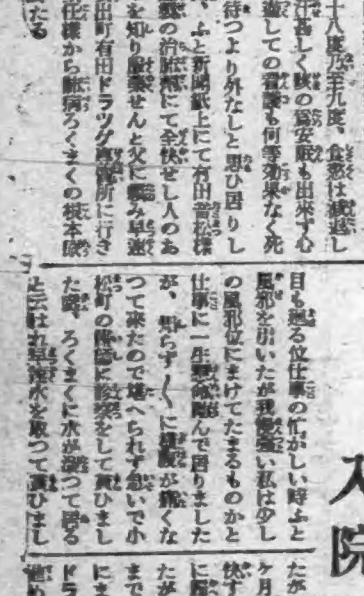 十八度乃至九度、食慾は減退し
汗甚しく咳の為安眠も出来ず心
しての看護も何等効果なく死
待つより外なしと思ひ困りし
、ふと新聞紙上にて有田音松様
の治肺剤にて全快せし人のあ
を知り服薬せんと父に頼み早速
出町有田ドラッグ専売所に行き
任様から肺病ろくまくの根本
たる
入院
目も廻る位仕事の忙がしい時ふと
風邪を引いたが我慢強い私は少し
の風邪位にまけてたまるものかと
仕事に一生懸命励んで困りました
が、知らず〱に横腹が痛くな
つて来たので堪へられず急いで小
松町の様に診察をして貰ひまし
た処、ろくまくに水が溜つて居る
と云はれ早速水を取つて貰ひまし
たが
ヶ月
快す
に
たが
まで
にま
ドラ